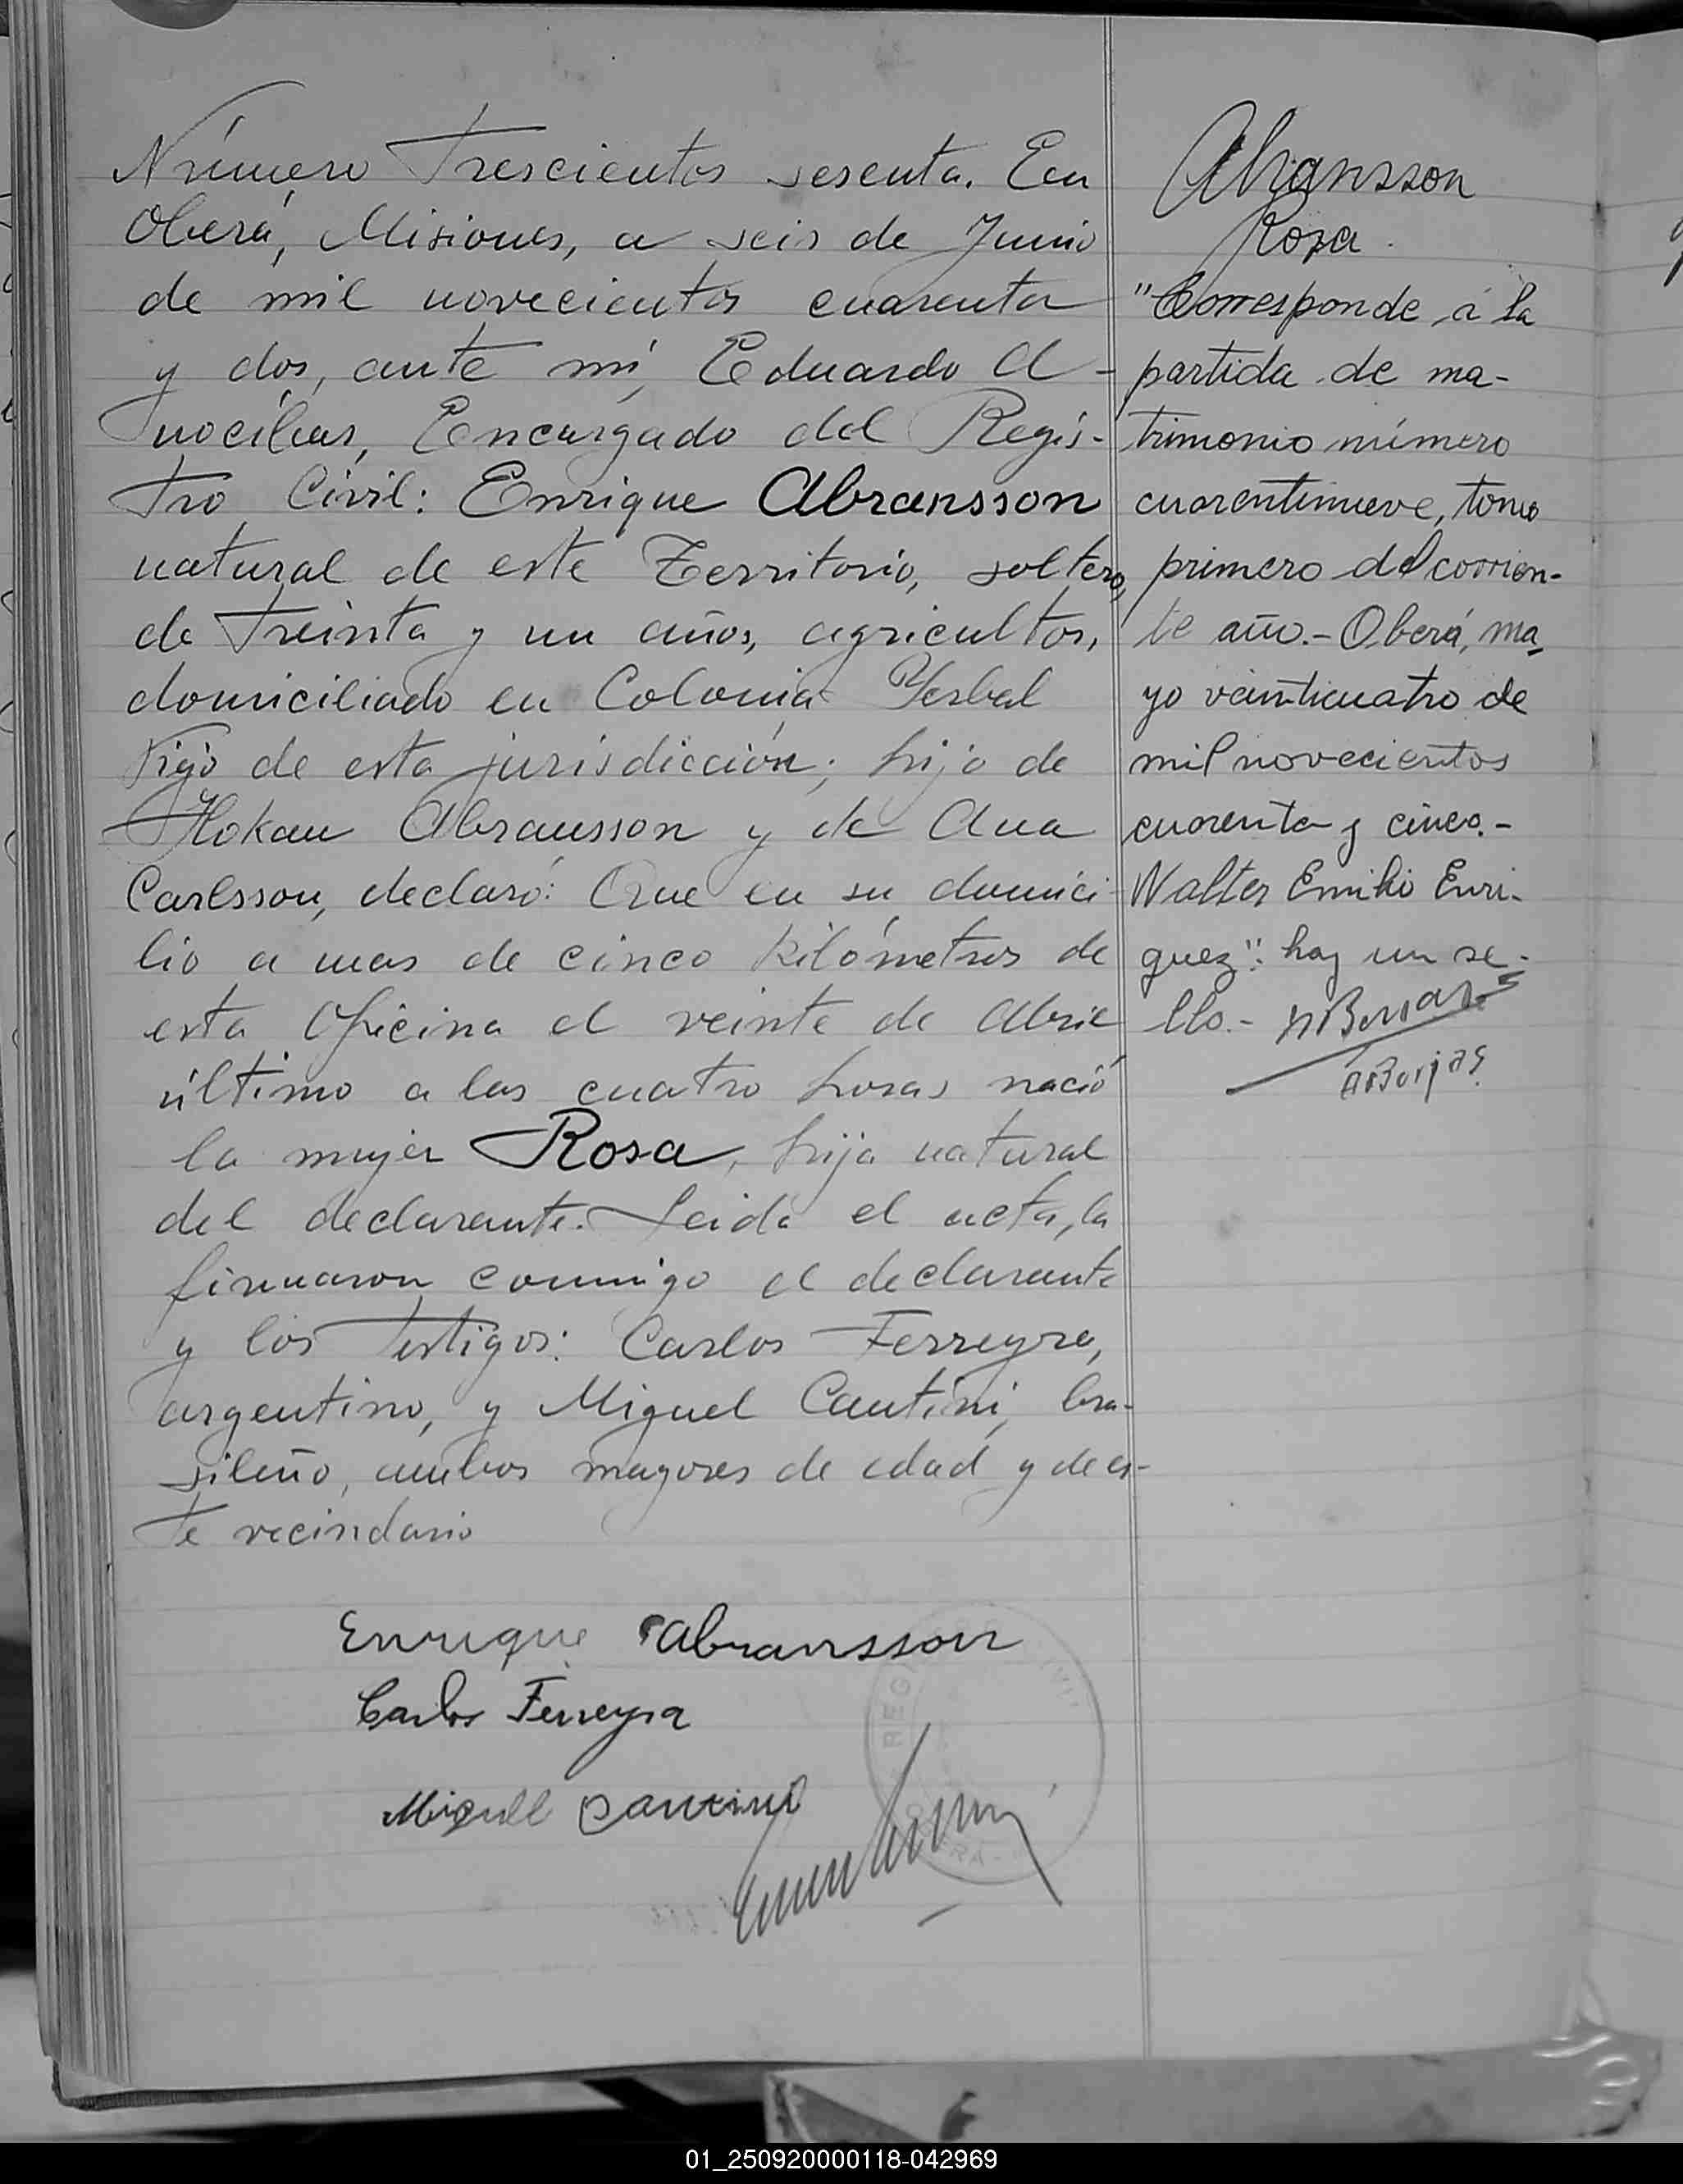 Número Trescientos sesenta. En
Oberá, Misiones, a seis de Junio
de mil novecientos cuarenta
y dos, ante mí, Eduardo A-
nocíbar, Encargado del Regis-
tro Civil: Enrique Abransson
natural de este Territorio, soltero,
de treinta y un años, agricultor,
domiciliado en Colonia Yerbal
Viejo de esta jurisdicción; hijo de
Hokan Abransson y de Ana
Carlsson, declaró: Que en su domici-
lio a mas de cinco kilómetros de
esta Oficina el veinte de Abril
último a las cuatro horas nació
la mujer Rosa, hija natural
del declarante. Leida el acta, la
firmaron conmigo el declarante
y los testigos: Carlos Ferreyra,
argentino, y Miguel Cantini, bra-
sileño, ambos mayores de edad y de es-
te vecindario
Enrique Abransson
Carlos Ferreyra
Miguell Cantini
REGI
Abransson
Rosa.
"Corresponde á la
partida de ma-
trimonio número
cuarentinueve, tomo
primero del corrien-
te año.- Oberá, ma-
yo veinticuatro de
mil novecientos
cuarenta y cinco.-
Walter Emilio Enri-
quez": hay un se-
llo.-
ArBorjas
01_250920000118-042969